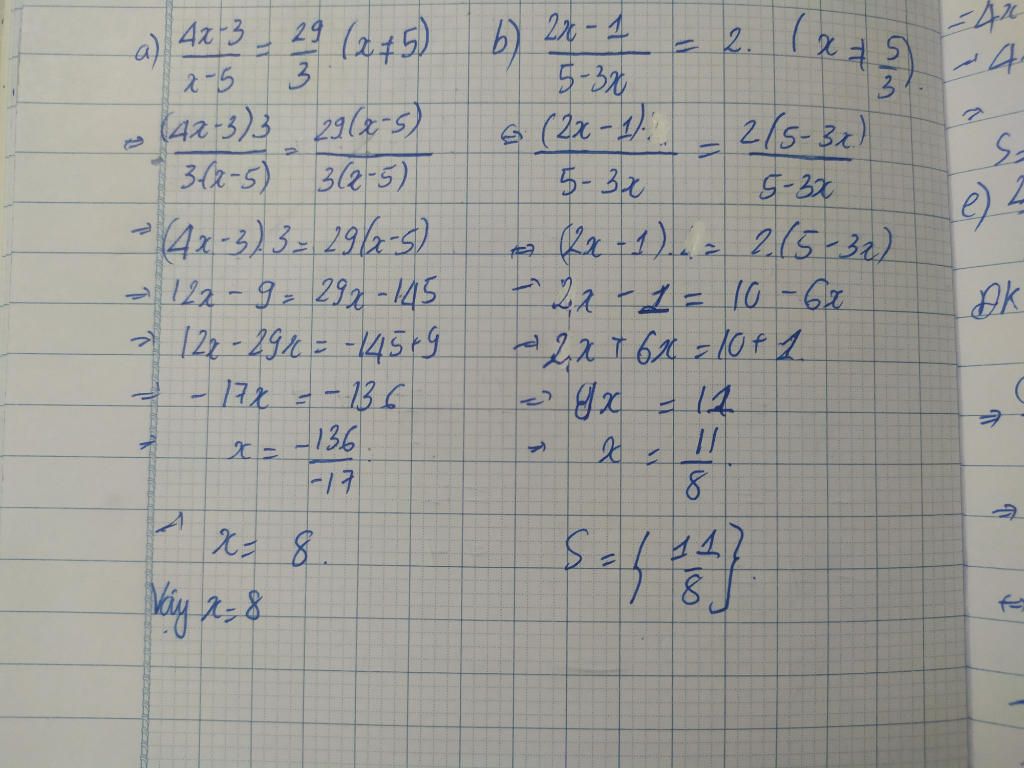 a) (4x-3)/(x-5) = 29/3 (x≠5)
⇒ (4x-3)3/3(x-5) = 29(x-5)/3(x-5)
⇒ (4x-3).3 = 29(x-5)
⇒ 12x - 9 = 29x - 145
⇒ 12x - 29x = -145+9
⇒ -17x = -136
⇒ x = -136/-17
x = 8.
Vậy x=8
b) (2x-1)/(5-3x) = 2. (x≠5/3).
⇔ (2x-1)./(5-3x) = 2(5-3x)/(5-3x)
⇔ (2x-1). = 2.(5-3x)
⇒ 2x - 1 = 10 - 6x
⇒ 2x + 6x = 10+1
⇒ x = 11
⇒ x = 11/8.
S = {11/8}.
=4x
S=
e)
ĐK
⇒
⇒
⇔